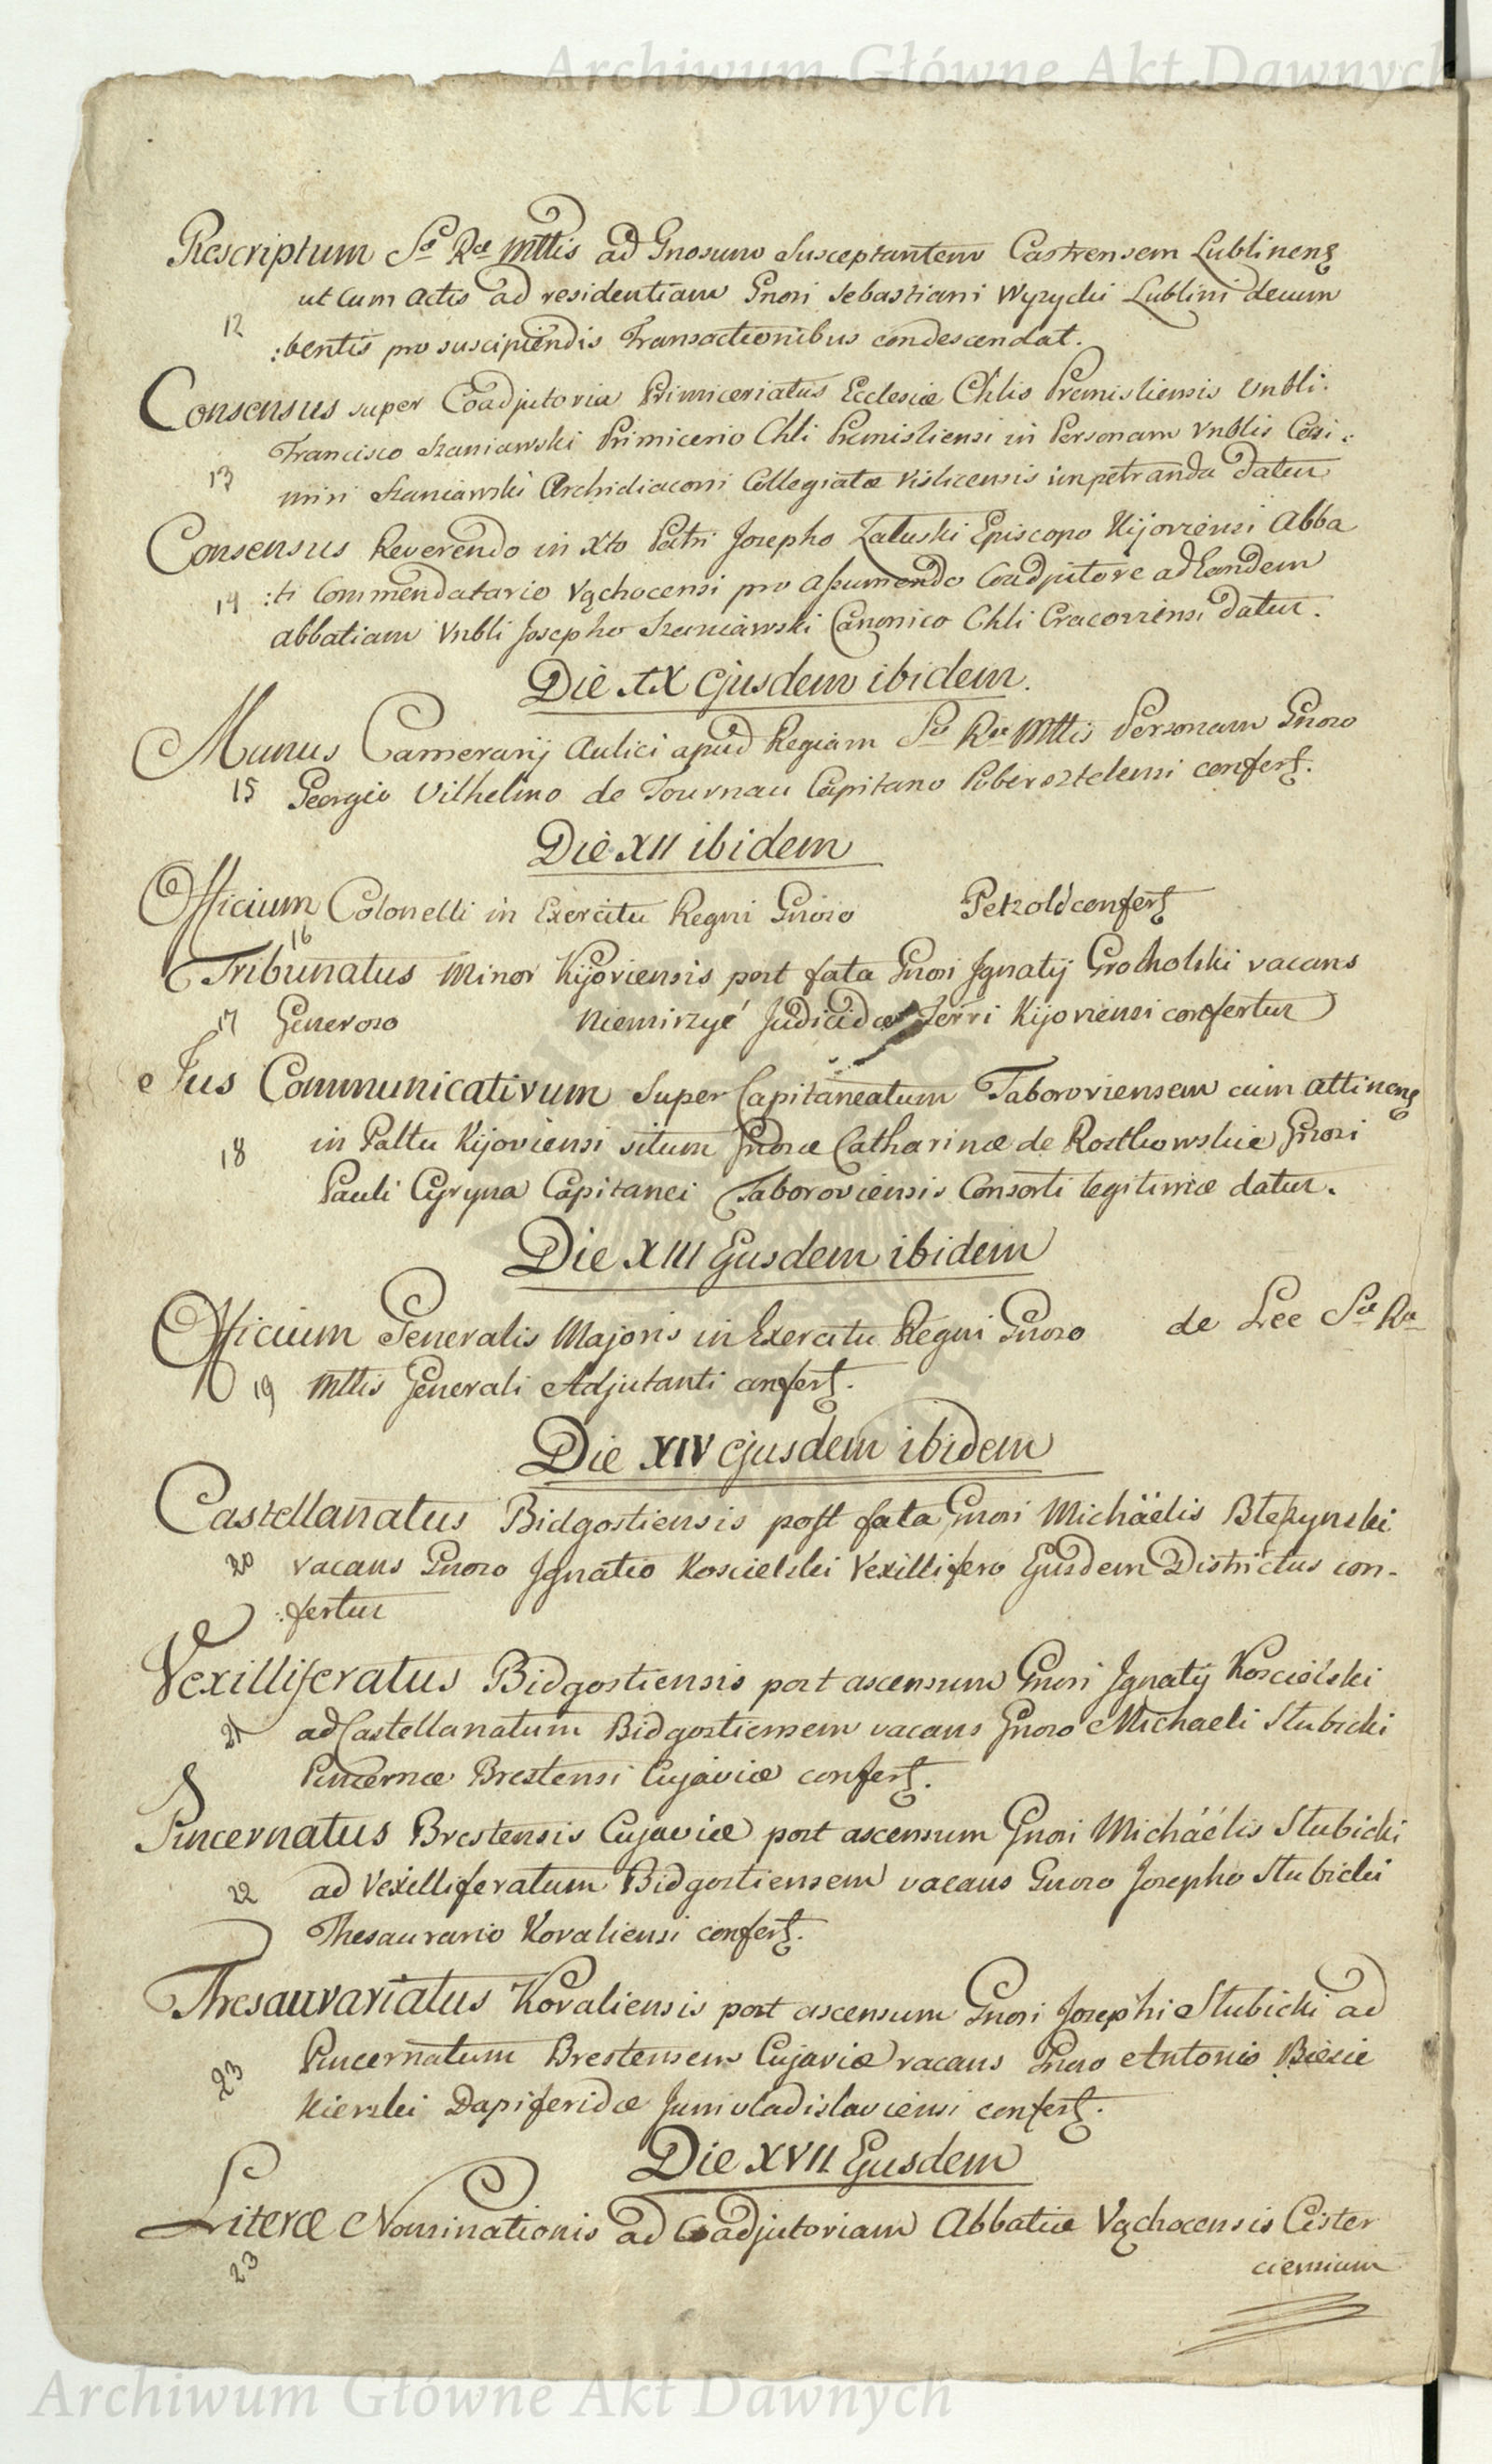 Archiwum Główne Akt Dawnych
Rescriptum Sæ Ræ Mttis ad Gnosum Susceptantem Castrensem Lublinenς
ut cum Actis ad residentiam Gnosi Sebastiani Wyzycki Lublini decum
12 :bentis pro suscipiendis Transactionibus condescendat.
Consensus super Coadjutoria Primiceriatus Ecclesiæ Chlis Premisliensis Vnbli:
Francisco Szaniawski Primicerio Chli Premisliensi in Personam Vnblis Casi:
13 miri Szaniawski Archidiaconi Collegiatæ Visliciensis impetranda datur
Consensus Reverendo in Xto Patri Josepho Zaluski Episcopo Kijoviensi Abba
14 :ti Commendatario Vąchocensi pro assumendo Coadjutore ad Eandem
abbatiam Vnbli Josepho Szaniawski Canonico Chli Cracoviensi datur.
Die IX ejusdem ibidem.
Munus Camerarij Aulici apud Regiam Sæ Ræ Mttis Personam Gnoso
15 Georgio Vilhelmo de Tournau Capitano Poberesztelensi conferς.
Die XII ibidem
Officium Colonelli in Exercitu Regni Gnoso Petzold conferς
16
Tribunatus Minor Kijoviensis post fata Gnosi Jgnatij Grocholski vacans
17 Generoso Niemirzyć Judicidæ Terri Kijoviensi confertur
Jus Communicativum super Capitaneatum Taboroviensem cum attinenς
18 in Pałtu Kijoviensi situm Gnosæ Catharinæ de Rostkowskie Gnosi
Pauli Cyryna Capitanei Taboroviensis Consorti legitimæ datur.
Die XIII Ejusdem ibidem
Officium Generalis Majoris in Exercitu Regni Gnoso de Lee Sæ Ræ
19 Mttis Generali Adjutanti conferς.
Die XIV ejusdem ibidem
Castellanatus Bidgostiensis post fata Gnosi Michäelis
20 vacans Gnoso Jgnatio Koscielski Vexillifero Ejusdem Districtus con-
:fertur
Vexilliferatus Bidgostiensis post ascensum Gnosi Jgnatij Koscielski
21 ad Castellanatum Bidgostiensem vacans Gnoso Michaeli Slubicki
Pincernæ Brestensi Cujaviæ conferς.
Pincernatus Brestensis Cujaviæ post ascensum Gnosi Micháélis Slubicki
22 ad Vexilliferatum Bidgostiensem vacans Gnoso Josepho Slubicki
Thesaurario Kovaliensi conferς.
Thesaurariatus Kovaliensis post ascensum Gnosi Josephi Slubicki ad
23 Pincernatum Brestensem Cujaviæ vacans Gnoso Antonio Biesie
kierski Dapiferidæ Junivladislaviensi conferς.
Die XVII Ejusdem
Literæ Nominationis ad Coadjutoriam Abbatiæ Vąchocensis Cister
23 ciensium
Archiwum Główne Akt Dawnych